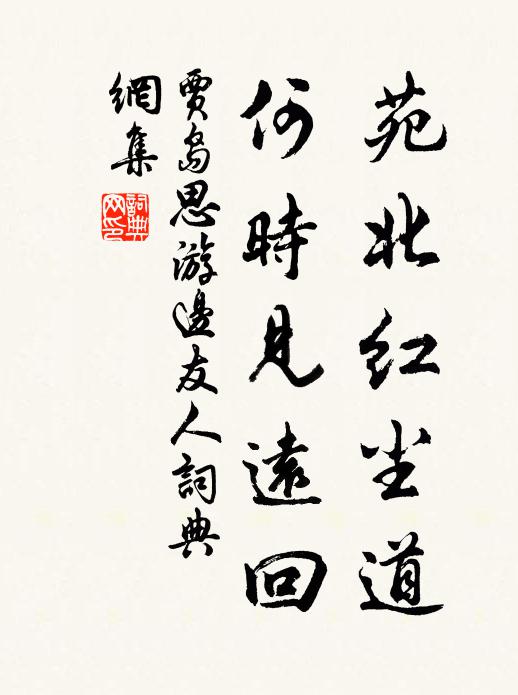 苑北红尘道
何時見遠回
賈島思游邊友人詞典
網集
詞典
网印